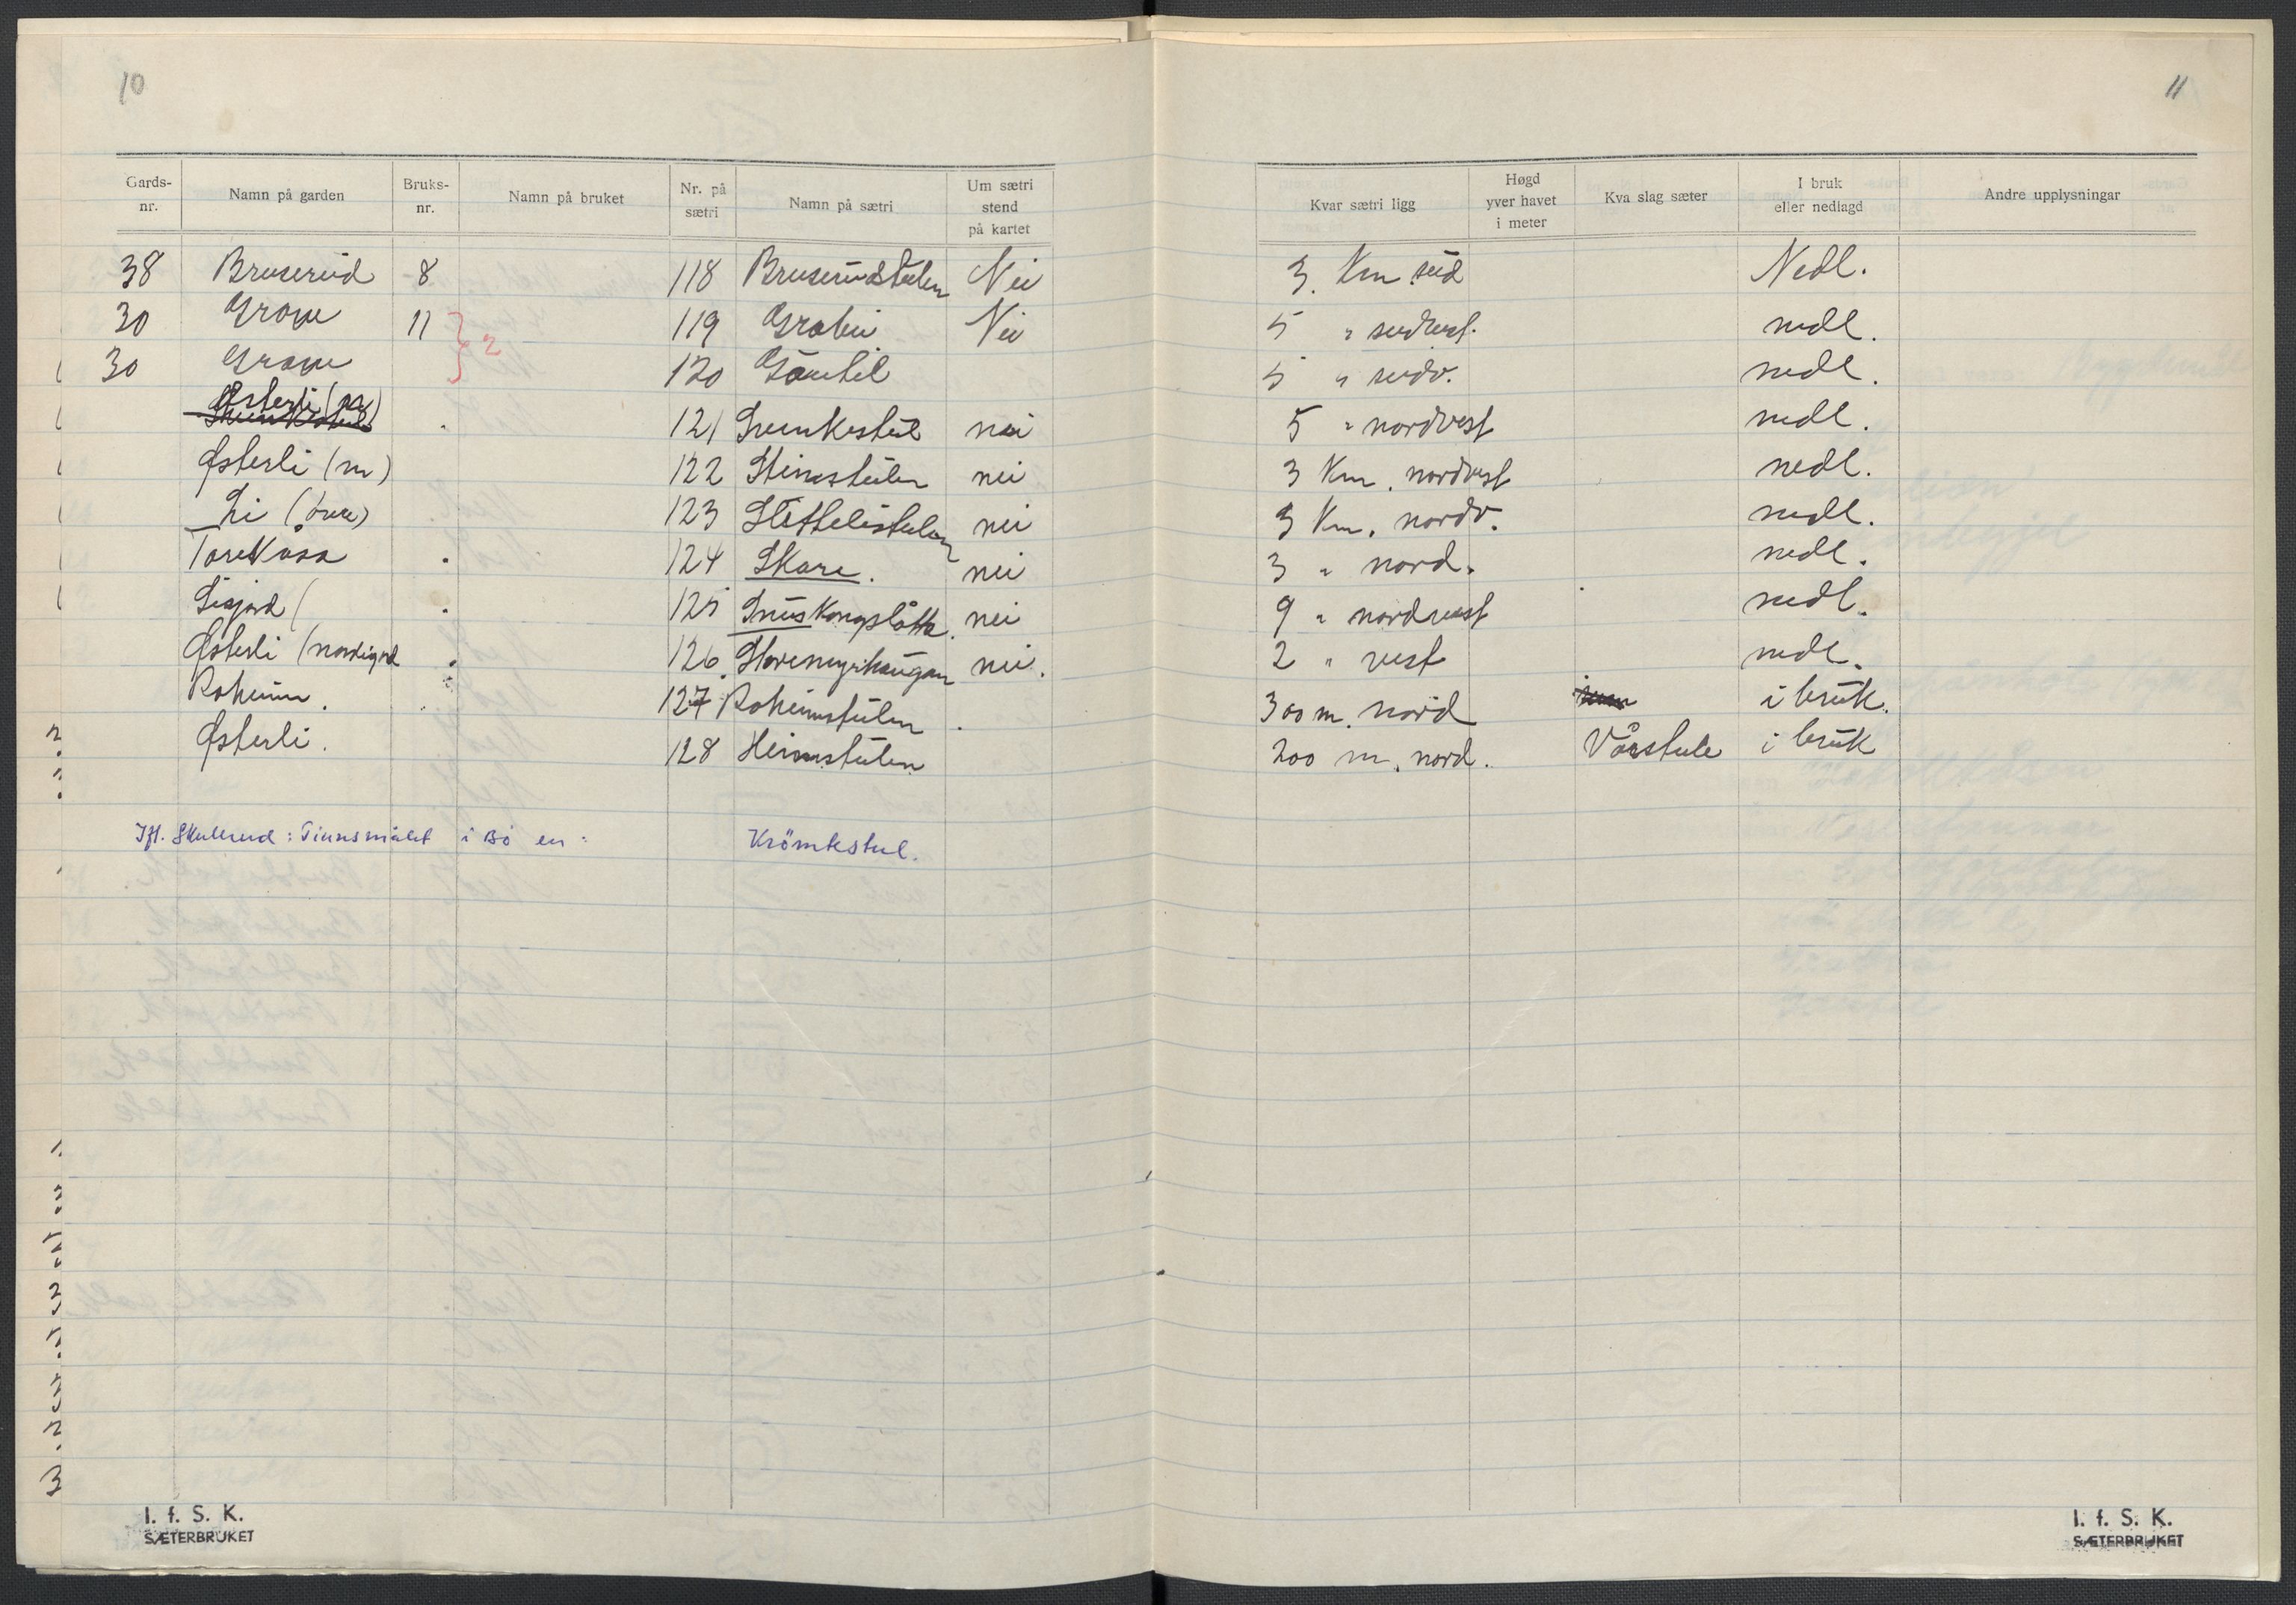 10
11
Gards-nr. Namn på garden Bruks-nr. Namn på bruket Nr. på sætri Namn på sætri Um sætri stend på kartet Kvar sætri ligg Høgd yver havet i meter Kva slag sæter I bruk eller nedlagd Andre upplysningar
38 Bruserud 8 118 Bruserudstulen Nei 3. Km sud Nedl.
30 Grave 11 119 Nei 5 " sudvest. nedl.
30 Grave 2 120 5 " sudv. nedl.
Østerli 121 nei 5 " nordvest nedl.
Østerli (m) 122 nei 3 Km. nordvest nedl.
Li 123 nei 3 Km. nordv. nedl.
Torekåsa 124 Skare. nei 3 " nord. nedl.
Ligjord ( 125 nei 9 " nordvest nedl.
Østerli (nordigard 126. Storemyrhaugan nei. 2 " vest nedl.
Roheim. 127 Roheimstulen 300 m. nord i bruk.
Østerli. 128 Heimstulen 200 m. nord. Vårstule i bruk
Ifl. Skulerud: Tinnsmålet i Bö en: Krömtestul.
I. f. S. K.
SÆTERBRUKET
I. f. S. K.
SÆTERBRUKET